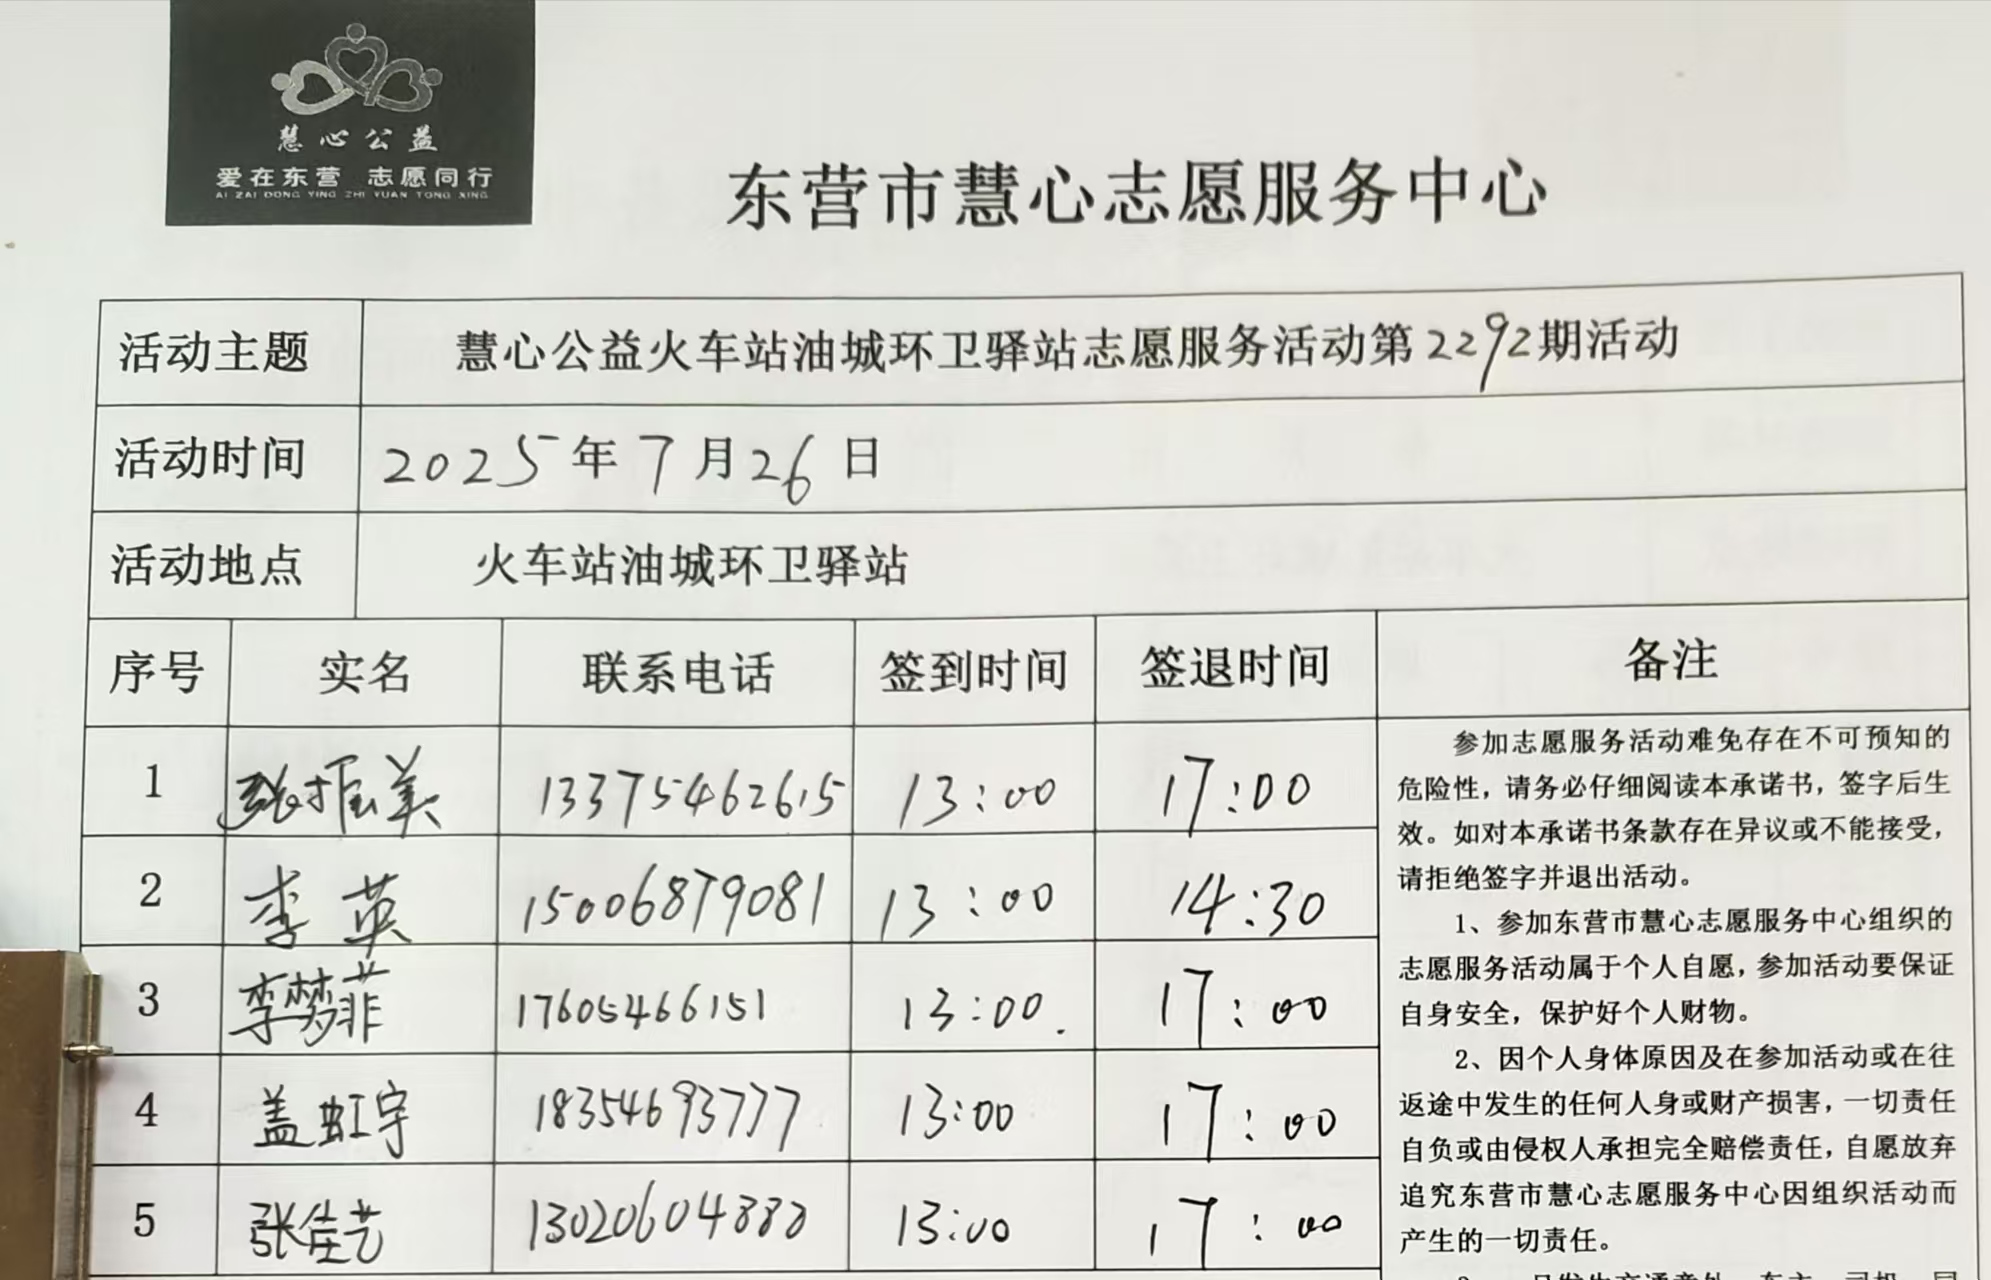 慧心公益
爱在东营 志愿同行
AI ZAI DONG YING ZHI YUAN TONG XING
东营市慧心志愿服务中心
活动主题 慧心公益火车站油城环卫驿站志愿服务活动第2292期活动
活动时间 2025年7月26日
活动地点 火车站油城环卫驿站
序号 实名 联系电话 签到时间 签退时间 备注
1 张振美 13375462615 13:00 17:00
2 李英 15006879081 13:00 14:30
3 李梦菲 17605466151 13:00. 17:00
4 盖虹宇 18354693777 13:00 17:00
5 张佳艺 13020604888 13:00 17:00
参加志愿服务活动难免存在不可预知的
危险性，请务必仔细阅读本承诺书，签字后生
效。如对本承诺书条款存在异议或不能接受，
请拒绝签字并退出活动。
1、参加东营市慧心志愿服务中心组织的
志愿服务活动属于个人自愿，参加活动要保证
自身安全，保护好个人财物。
2、因个人身体原因及在参加活动或在往
返途中发生的任何人身或财产损害，一切责任
自负或由侵权人承担完全赔偿责任，自愿放弃
追究东营市慧心志愿服务中心因组织活动而
产生的一切责任。